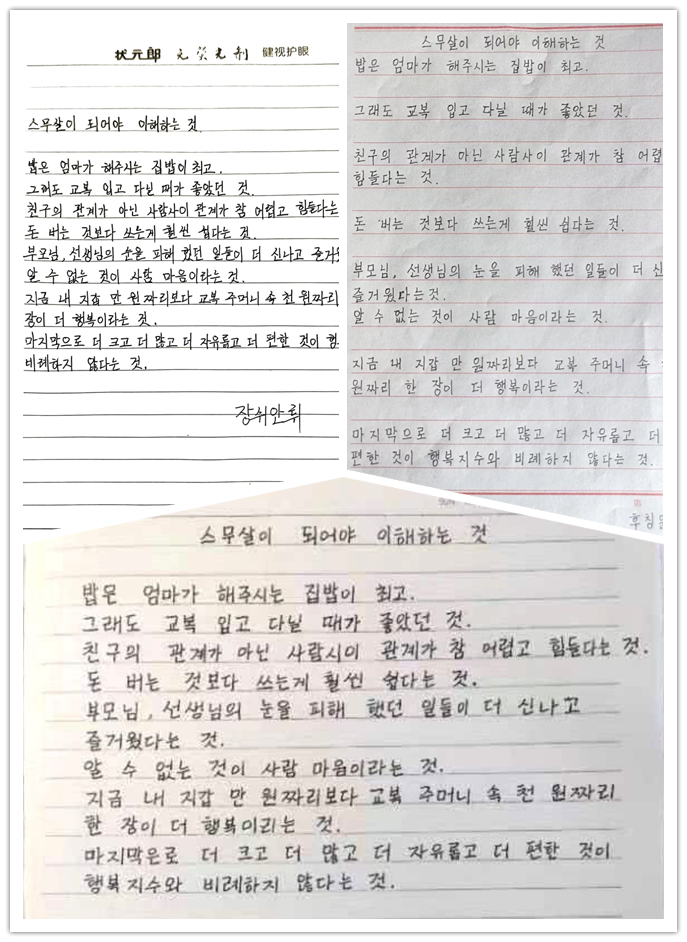 状元郎 健视护眼
스무살이 되어야 이해하는 것.
밥은 엄마가 해주시는 집밥이 최고.
그래도 교복 입고 다닐 때가 좋았던 것.
친구의 관계가 아닌 사람사이 관계가 참 어렵고 힘들다는
돈 버는 것보다 쓰는게 훨씬 쉽다는 것.
부모님, 선생님의 눈을 피해 했던 일들이 더 신나고 즐거웠
알 수 없는 것이 사람 마음이라는 것.
지금 내 지갑 만 원짜리보다 교복 주머니 속 천 원짜리
장이 더 행복이라는 것.
마지막으로 더 크고 더 많고 더 자유롭고 더 편한 것이 행
비례하지 않다는 것.
장쉬안뤼
스무살이 되어야 이해하는 것
밥은 엄마가 해주시는 집밥이 최고.
그래도 교복 입고 다닐 때가 좋았던 것.
친구의 관계가 아닌 사람사이 관계가 참 어렵
힘들다는 것.
돈 버는 것보다 쓰는게 훨씬 쉽다는 것.
부모님, 선생님의 눈을 피해 했던 일들이 더 신
즐거웠다는 것.
알 수 없는 것이 사람 마음이라는 것.
지금 내 지갑 만 원짜리보다 교복 주머니 속
원짜리 한 장이 더 행복이라는 것.
마지막으로 더 크고 더 많고 더 자유롭고 더
편한 것이 행복지수와 비례하지 않다는 것.
후칭
스무살이 되어야 이해하는 것
밥은 엄마가 해주시는 집밥이 최고.
그래도 교복 입고 다닐 때가 좋았던 것.
친구의 관계가 아닌 사람시이 관계가 참 어렵고 힘들다는 것.
돈 버는 것보다 쓰는게 훨씬 쉽다는 것.
부모님, 선생님의 눈을 피해 했던 일들이 더 신나고
즐거웠다는 것.
알 수 없는 것이 사람 마음이라는 것.
지금 내 지갑 만 원짜리보다 교복 주머니 속 천 원짜리
한 장이 더 행복이리는 것.
마지막은로 더 크고 더 많고 더 자유롭고 더 편한 것이
행복지수와 비례하지 않다는 것.